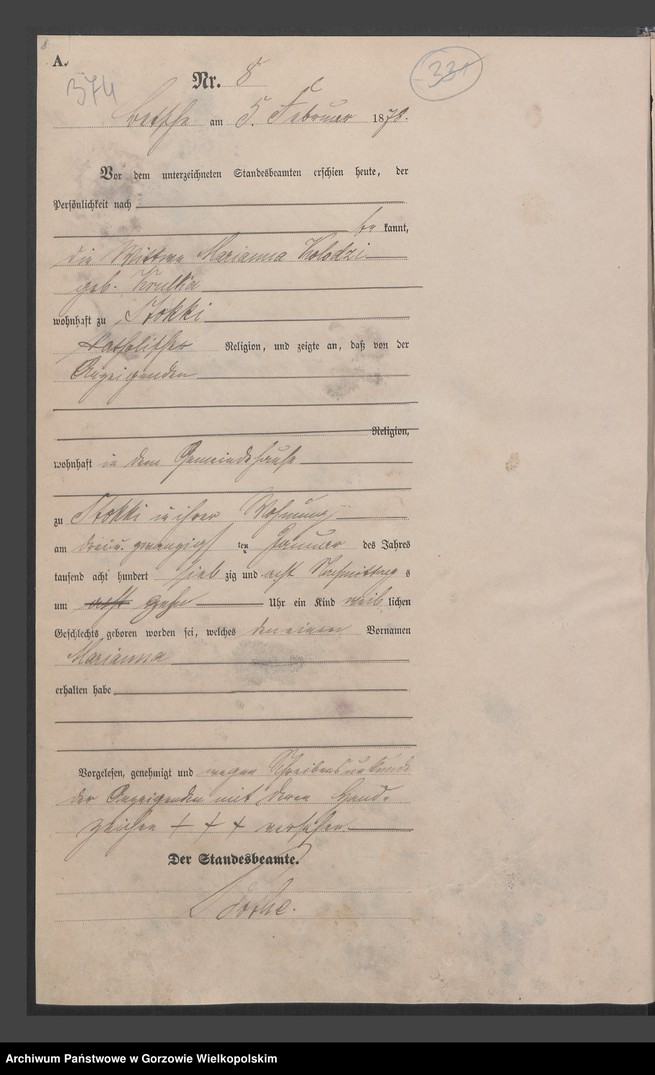 8
A.
374
Nr. 8
33
Betsche am 5. Februar 1878.
Vor dem unterzeichneten Standesbeamten erschien heute, der
Persönlichkeit nach
be kannt,
die Wittwe Marianna Kolodzi
geb. Krulka
wohnhaft zu Stokki
katholischer Religion, und zeigte an, daß von der
Anzeigenden
Religion,
wohnhaft in dem Gemeindehause
zu Stokki in ihrer Wohnung
am drei u. zwanzigsten Januar des Jahres
tausend acht hundert sieb zig und acht Vormittags
um acht zehn Uhr ein Kind weib lichen
Geschlechts geboren worden sei, welches den einen Vornamen
Marianna
erhalten habe
Vorgelesen, genehmigt und wegen Schreibensunkunde
der Anzeigenden mit deren Hand-
zeichen + + + versehen.
Der Standesbeamte.
Archiwum Państwowe w Gorzowie Wielkopolskim